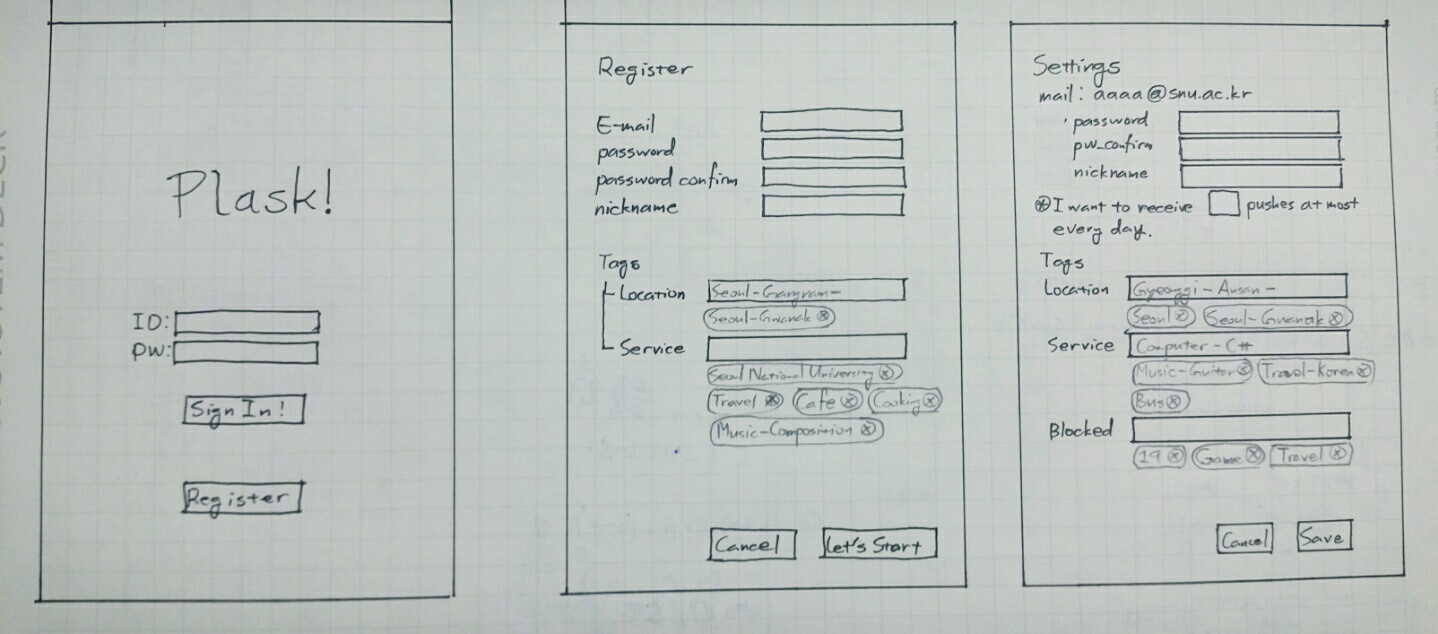 Plask!
ID:
PW:
Sign In!
Register
Register
E-mail
password
password confirm
nickname
Tags
Location
Seoul-Gangnam-
Seoul-Gwanak ⓧ
Service
Seoul National University ⓧ
Travel ⓧ Cafe ⓧ Cooking ⓧ
Music-Composition ⓧ
Cancel Let's Start
Settings
mail: aaaa@snu.ac.kr
password
pw_confirm
nickname
ⓧ I want to receive pushes at most
every day.
Tags
Location Gyeonggi-Ansan-
Seoul ⓧ Seoul-Gwanak ⓧ
Service Computer-C#
Music-Guitar ⓧ Travel-Korea ⓧ
Bus ⓧ
Blocked
19 ⓧ Game ⓧ Travel ⓧ
Cancel Save